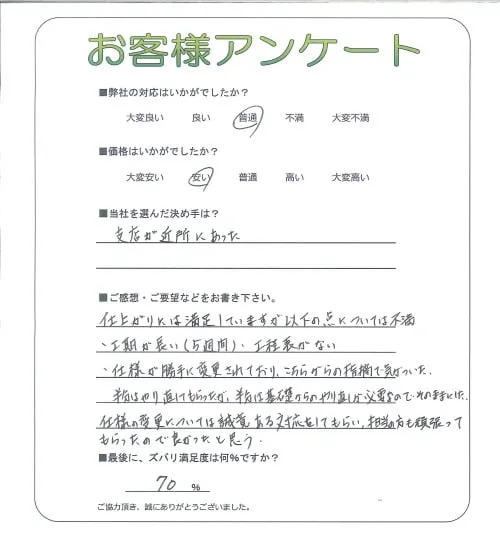 お客様アンケート
■弊社の対応はいかがでしたか?
大変良い 良い 普通 不満 大変不満
■価格はいかがでしたか?
大変安い 安い 普通 高い 大変高い
■当社を選んだ決め手は?
支店が近所にあった
■ご感想・ご要望などをお書き下さい。
仕上がりには満足していますが以下の点については不満
・工期が長い(5週間)・工程表がない
・仕様が勝手に変更されており、こちらからの指摘で気がついた。
半分はやり直してもらったが、半分は基礎からのやり直しが必要なのでそのままにした。
仕様の変更については誠意ある対応をしてもらい、担当の方も頑張って
もらったので良かったと思う.
■最後に、ズバリ満足度は何%ですか?
70 %
ご協力頂き、誠にありがとうございました。